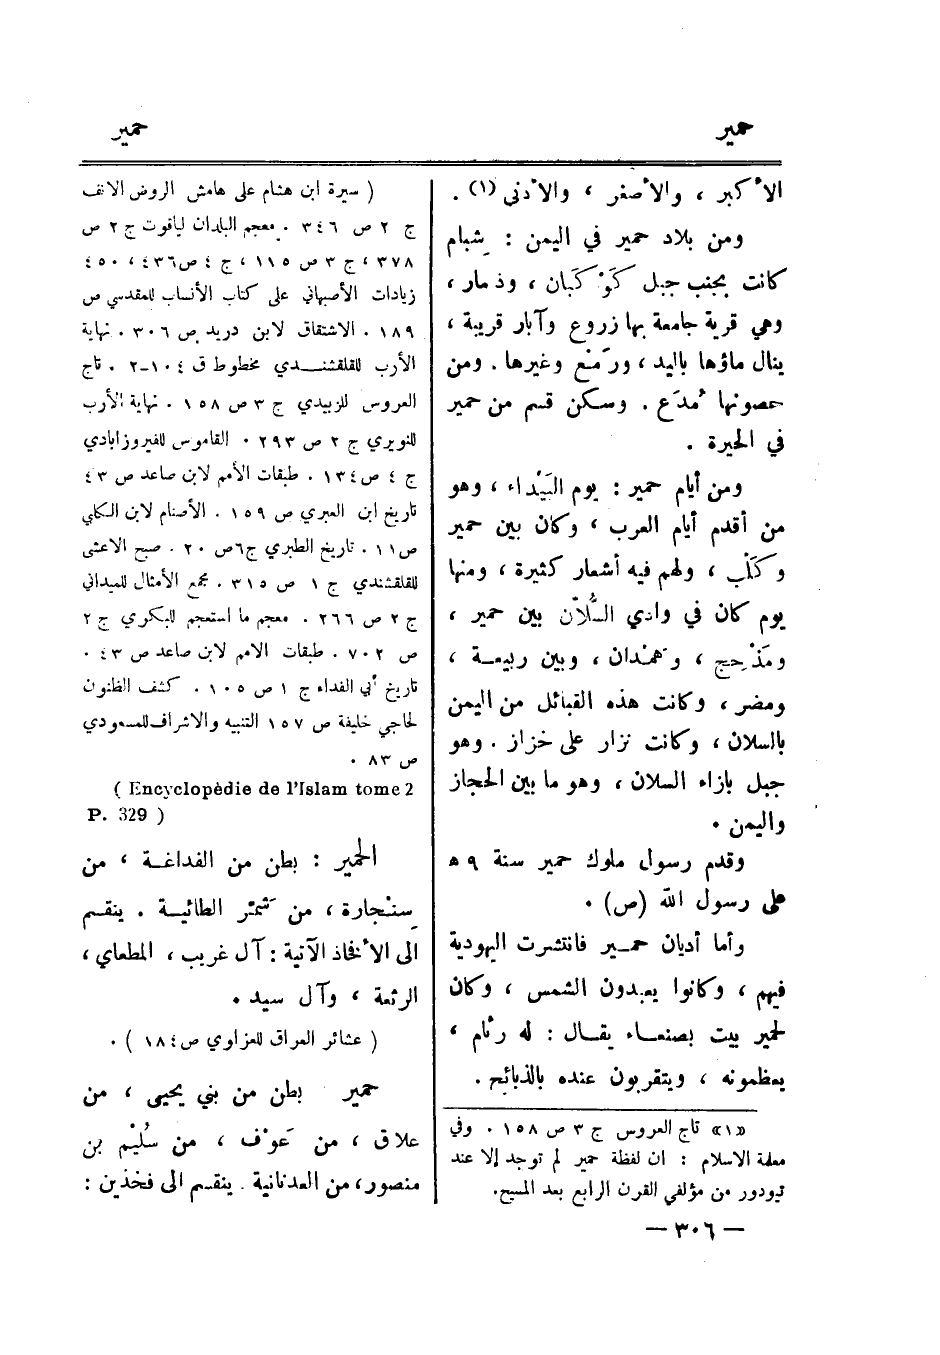 حمير
حمير
الأكبر ، والأصغر ، والأدنى (١) .
ومن بلاد حمير في اليمن : شِبام
كانت بجنب جبل كَوْكَبان ، وذمار ،
وهي قرية جامعة بها زروع وآبار قريبة ،
ينال ماؤها باليد ، ورِمَع وغيرها . ومن
حصونها مُدَع . وسكن قسم من حمير
في الحيرة .
ومن أيام حمير : يوم البَيْداء ، وهو
من أقدم أيام العرب ، وكان بين حمير
وكَلْب ، ولهم فيه أشعار كثيرة ، ومنها
يوم كان في وادي السُّلاّن بين حمير ،
ومَذْحِج ، وهَمْدان ، وبين ربيعة ،
ومضر ، وكانت هذه القبائل من اليمن
بالسلان ، وكانت نزار على خزاز . وهو
جبل بازاء السلان ، وهو ما بين الحجاز
واليمن .
وقدم رسول ملوك حمير سنة ٩ ه
على رسول الله (ص) .
وأما أديان حمير فانتشرت اليهودية
فيهم ، وكانوا يعبدون الشمس ، وكان
لحمير بيت بصنعاء يقال : له رئام ،
يعظمونه ، ويتقربون عنده بالذبائح .
«١» تاج العروس ج ٣ ص ١٥٨ . وفي
معلمة الاسلام : ان لفظة حمير لم توجد إلا عند
تيودور من مؤلفي القرن الرابع بعد المسيح.
( سيرة ابن هشام على هامش الروض الانف
ج ٢ ص ٣٤٦ . معجم البلدان لياقوت ج ٢ ص
٣٧٨ ، ج ٣ ص ١١٥ ، ج ٤ ص٤٣٦ ، ٤٥٠
زيادات الأصبهاني على كتاب الأنساب للمقدسي ص
١٨٩ . الاشتقاق لابن دريد ص ٣٠٦ . نهاية
الأرب للقلقشندي مخطوط ق ١٠٤-٢ . تاج
العروس للزبيدي ج ٣ ص ١٥٨ . نهاية الأرب
للنويري ج ٢ ص ٢٩٣ . القاموس للفيروزابادي
ج ٤ ص١٣٤ . طبقات الأمم لابن صاعد ص ٤٣
تاريخ ابن العبري ص ١٥٩ . الأصنام لابن الكلبي
ص١١ . تاريخ الطبري ج٦ص ٢٠ . صبح الاعشى
للقلقشندي ج ١ ص ٣١٥ . مجمع الأمثال للميداني
ج ٢ ص ٢٦٦ . معجم ما استعجم للبكري ج ٢
ص ٧٠٢ . طبقات الامم لابن صاعد ص ٤٣ .
تاريخ أبي الفداء ج ١ ص ١٠٥ . كشف الظنون
لحاجي خليفة ص ١٥٧ التنبيه والاشراف للمسعودي
ص ٨٣ .
( Encyclopédie de l'Islam tome 2
P. 329 )
الحمير : بطن من الفداغة ، من
سِنْجارة ، من شَمَّر الطائية . ينقسم
الى الأفخاذ الآتية : آل غريب ، المطعاي ،
الرثعة ، وآل سيد .
( عشائر العراق للعزاوي ص١٨٤ ) .
حمير بطن من بني يحيى ، من
علاق ، من عَوْف ، من سُلَيْم بن
منصور، من العدنانية . ينقسم الى فخذين :
— ٣٠٦ —